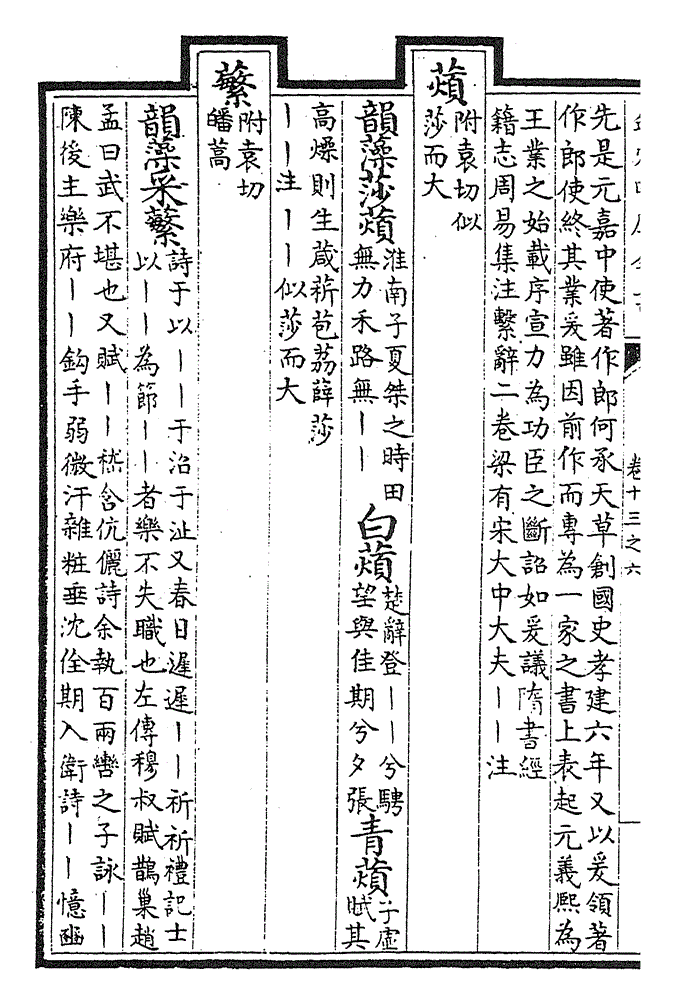 卷十三之六
先是元嘉中使著作郎何承天草創國史孝建六年又以爰領著
作郎使終其業爰雖因前作而專為一家之書上表起元義熙為
王業之始載序宣力為功臣之斷詔如爰議隋書經
籍志周易集注繫辭二卷梁有宋大中大夫——注
薠
附袁切似
莎而大
韻藻莎薠
淮南子夏桀之時田
無力禾路無——
白薠
楚辭登——兮騁
望與佳期兮夕張
青薠
子虛
賦其
高燥則生葴菥苞荔薛莎
——注——似莎而大
蘩
附袁切
皤蒿
韻藻采蘩
詩于以——于沼于沚又春日遲遲——祈祈禮記士
以——為節——者樂不失職也左傳穆叔賦鵲巢趙
孟曰武不堪也又賦——嵇含伉儷詩余執百兩轡之子詠——
陳後主樂府——鈎手弱微汗雜粧垂沈佺期入衛詩——憶豳